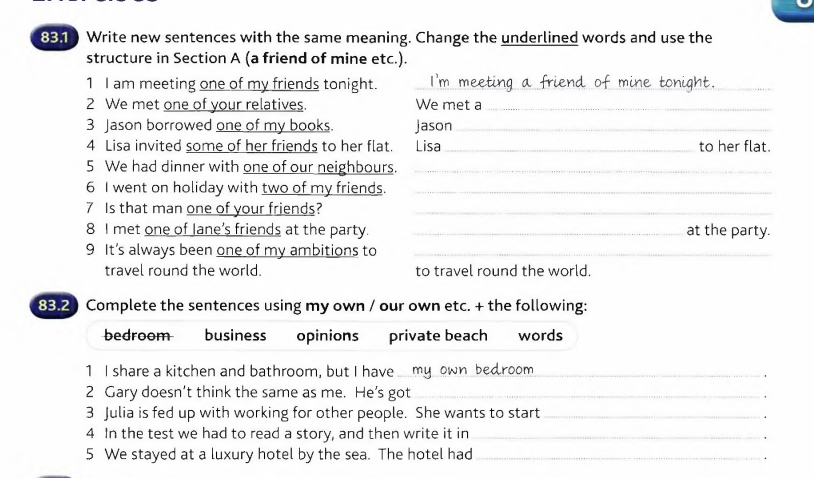 83.1 Write new sentences with the same meaning. Change the underlined words and use the
structure in Section A (a friend of mine etc.).
1 I am meeting one of my friends tonight. I'm meeting a friend of mine tonight.
2 We met one of your relatives. We met a
3 Jason borrowed one of my books. Jason
4 Lisa invited some of her friends to her flat. Lisa to her flat.
5 We had dinner with one of our neighbours.
6 I went on holiday with two of my friends.
7 Is that man one of your friends?
8 I met one of Jane's friends at the party. at the party.
9 It's always been one of my ambitions to
travel round the world. to travel round the world.
83.2 Complete the sentences using my own / our own etc. + the following:
bedroom business opinions private beach words
1 I share a kitchen and bathroom, but I have my own bedroom .
2 Gary doesn't think the same as me. He's got .
3 Julia is fed up with working for other people. She wants to start .
4 In the test we had to read a story, and then write it in .
5 We stayed at a luxury hotel by the sea. The hotel had .